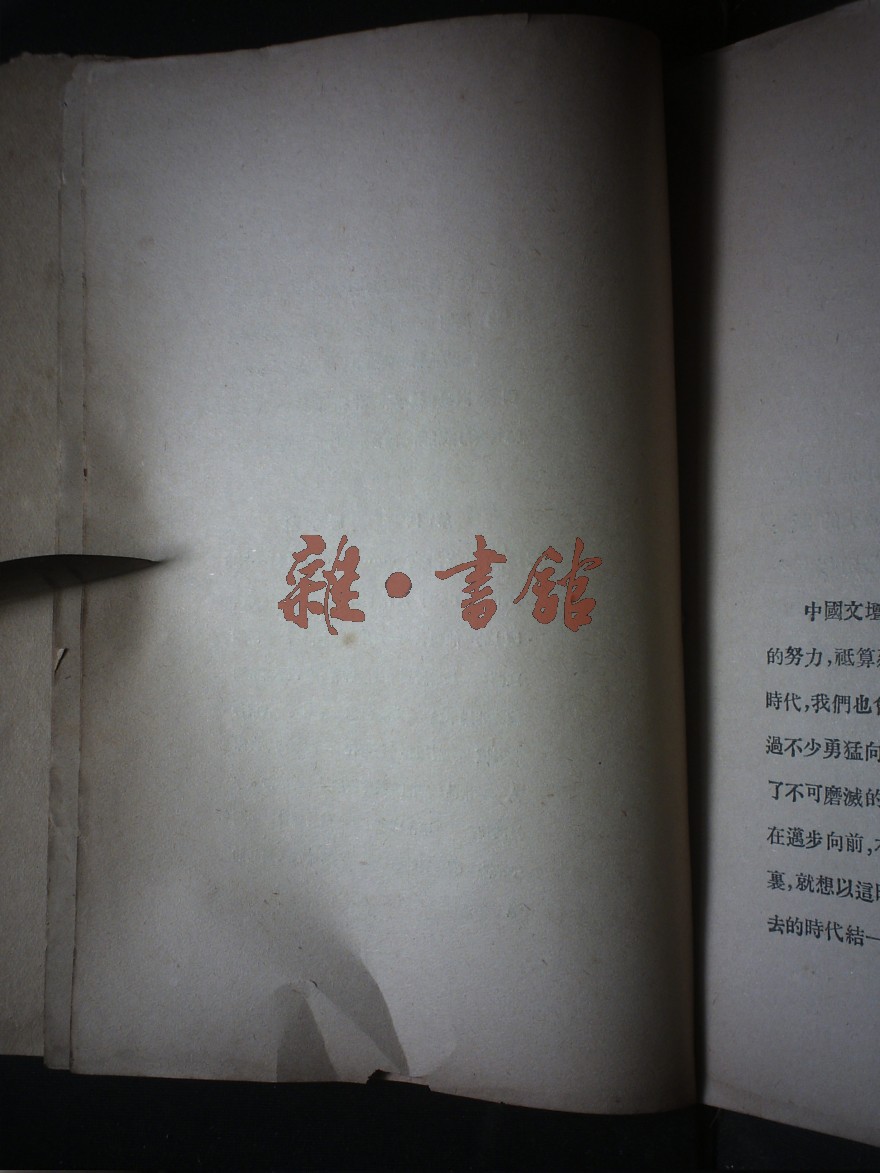 雜·書館
中國文壇
的努力,祗算
時代,我們也
過不少勇猛向
了不可磨滅的
在邁步向前,
裏,就想以這
去的時代結一